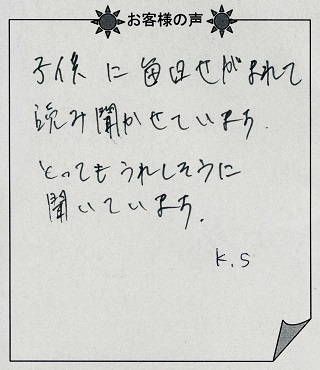 お客様の声
子供に毎日せがまれて
読み聞かせています.
とってもうれしそうに
聞いています.
K.S